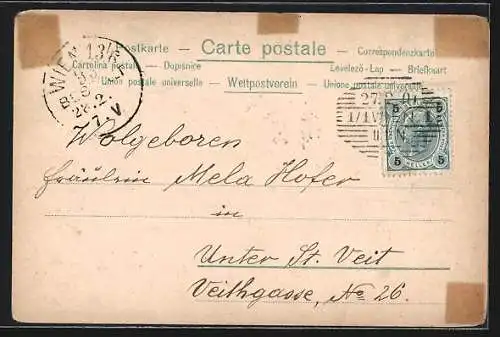 Postkarte — Carte postale — Correspondenzkarte
Cartolina postale — Dopisnice
Levelező-Lap — Briefkaart
Union postale universelle — Weltpostverein — Unione postale universale
WIEN 13/6
28.2
7.V
27.2.01
1/1 WIEN 1
5 5
5 HELLER 5
Wolgeboren
Fräulein Mela Hofer
in
Unter St. Veit
Veithgasse, No 26.